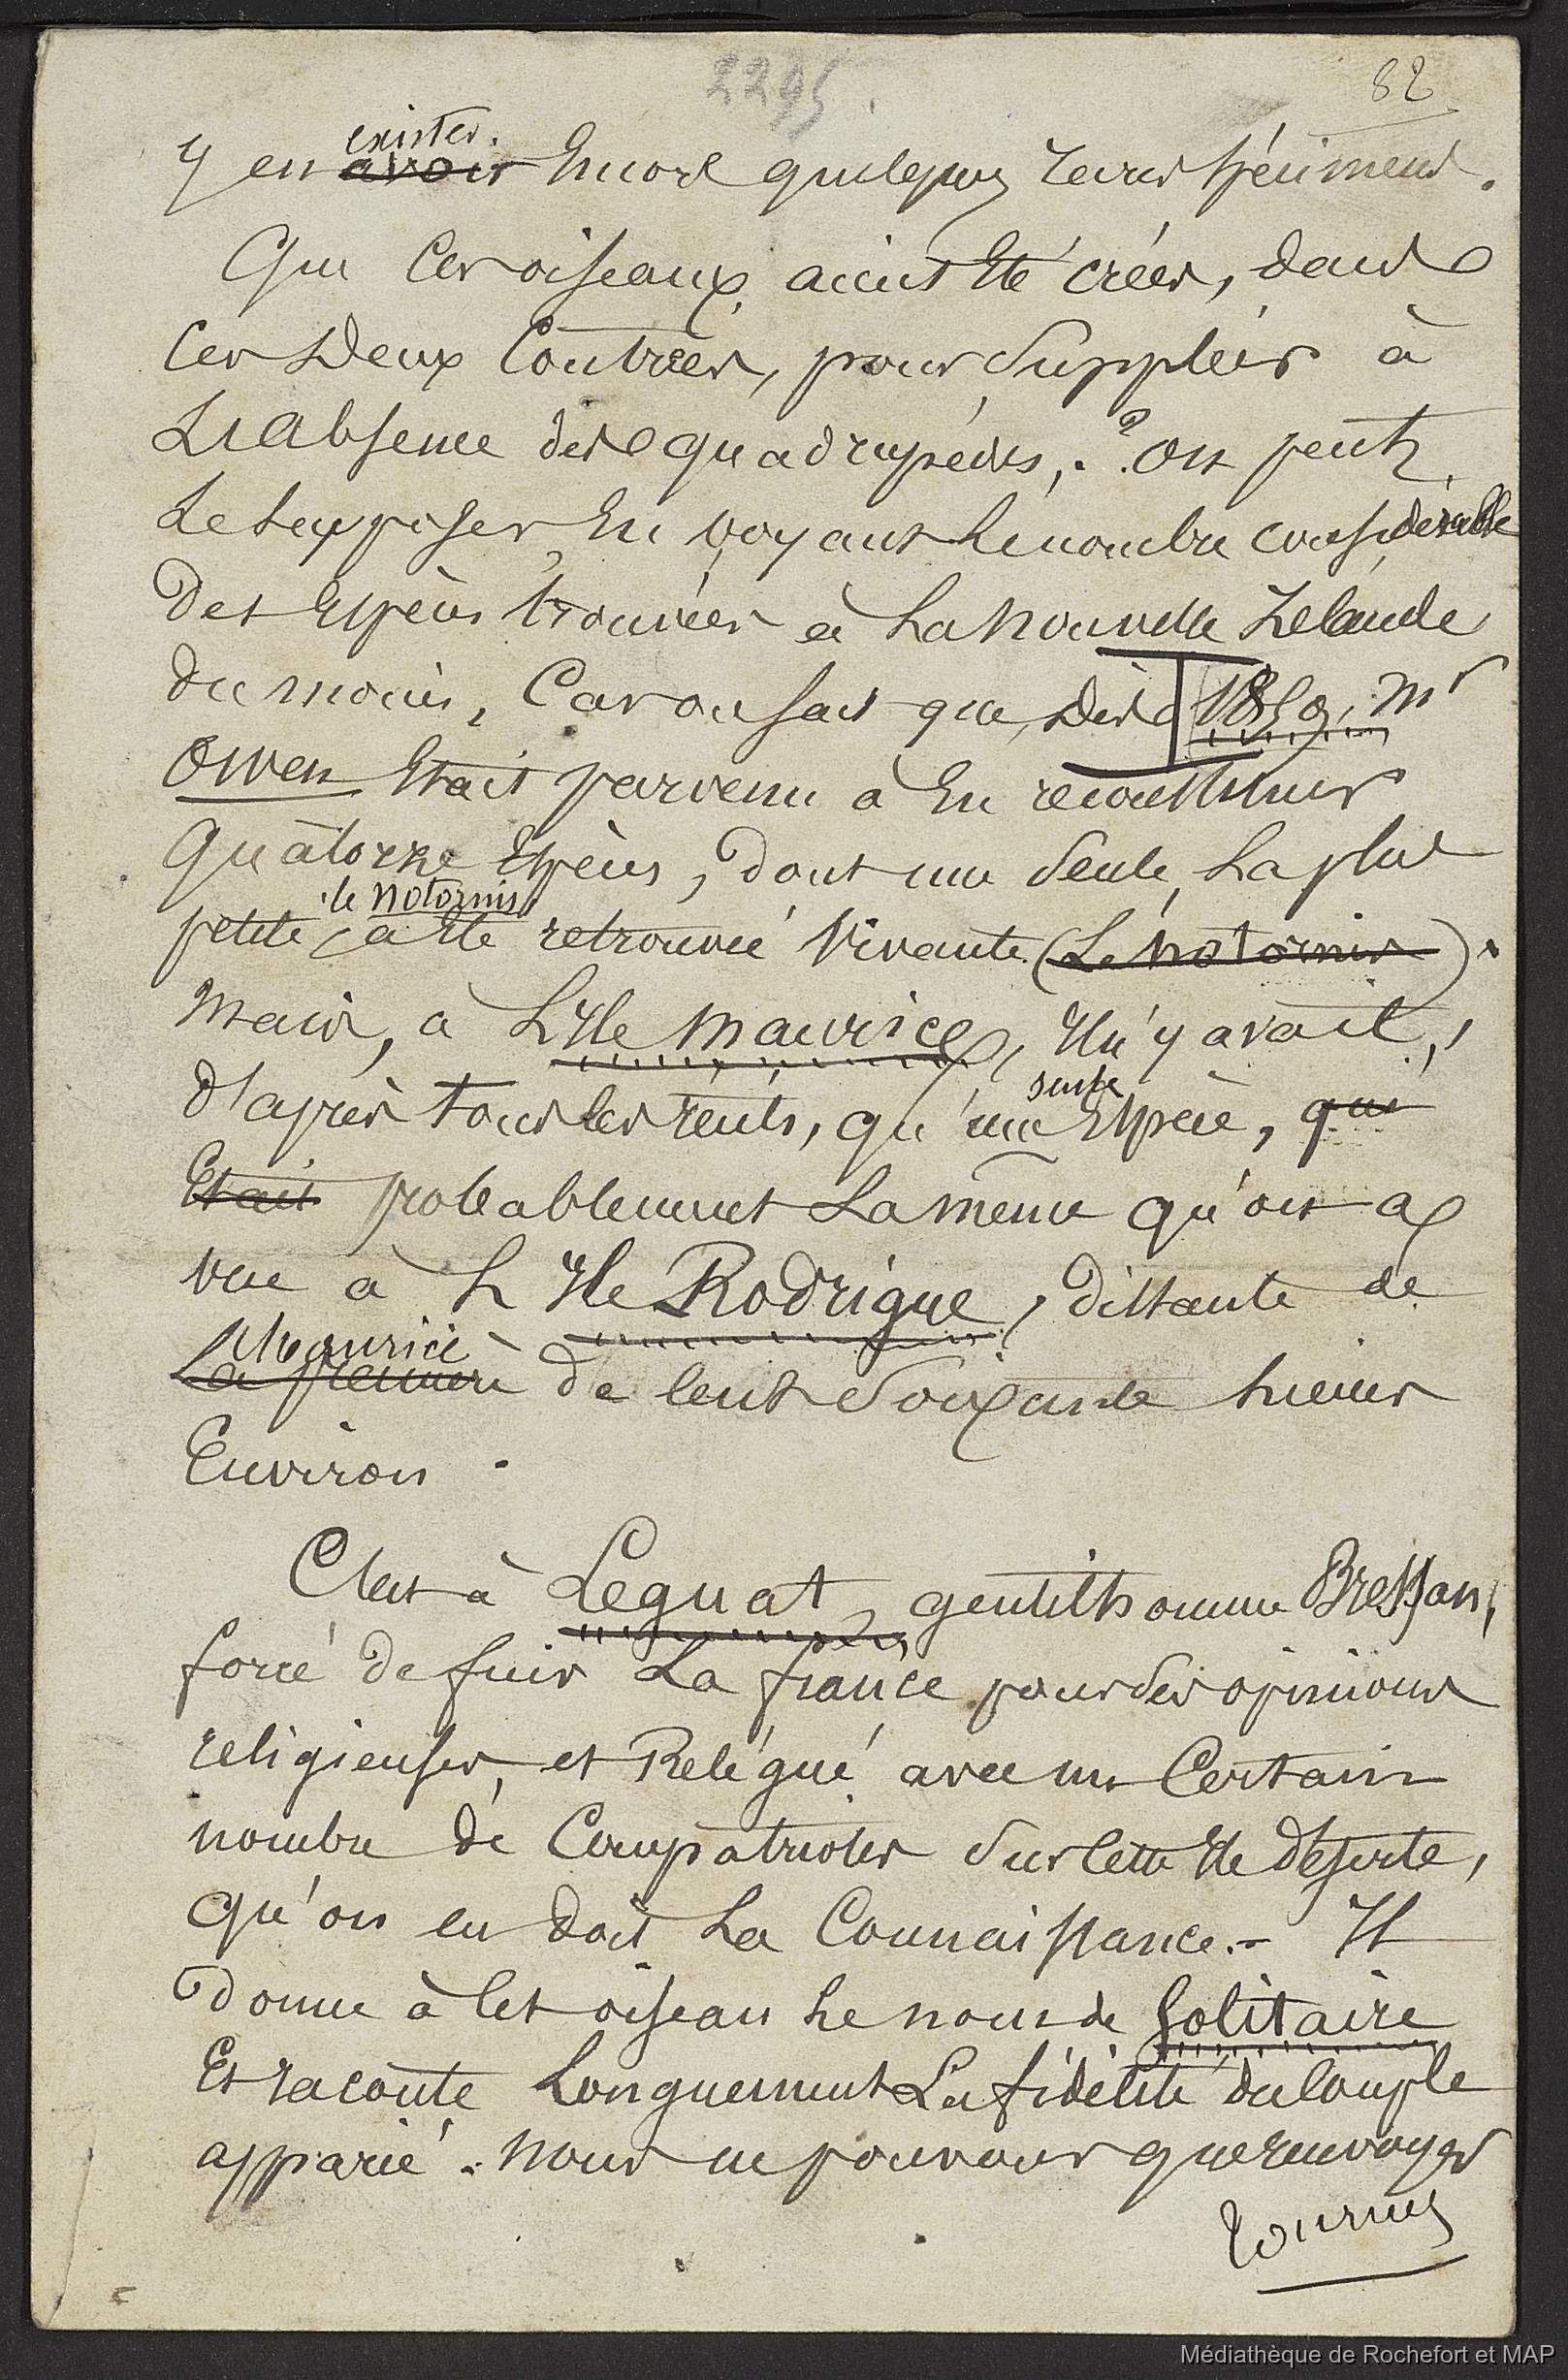 2295
82
exister.
y en avoir Encore quelques rares spécimens.
Que Ces oiseaux, aient Eté créés, dans
Ces Deux Contrées, pour Suppléer à
L'Absence des quadrupèdes, ? On peut
Le Supposer, En voyant Le nombre considérable
Des Espèces trouvées à La nouvelle Zélande
du moins, Car on sait que, Dès 1850, Mr
Owen Etait parvenu à En reconstituer
Quatorze Espèces, dont une Seule, La plus
le Notornis
petite, a Eté retrouvée Vivante (Le Notornis).
Mais, à L'Ile Maurice, Il n'y avait,
seule
d'après tous les récits, qu'une Espèce, qui
Etait probablement La même qu'on a
vue à L'Ile Rodrigue, distante de
Maurice
La première de Cent Soixante lieues
Environ.
C'est à Leguat, gentilhomme Bressan,
forcé de fuir La france pour ses opinions
religieuses, et Relégué avec un Certain
nombre de Compatriotes Sur Cette Ile déserte,
qu'on en doit La Connaissance. - Il
donne à Cet oiseau Le nom de Solitaire
Et raconte Longuement La fidélité du Couple
apparié. Nous ne pouvons que renvoyer
Tournez
Médiathèque de Rochefort et MAP